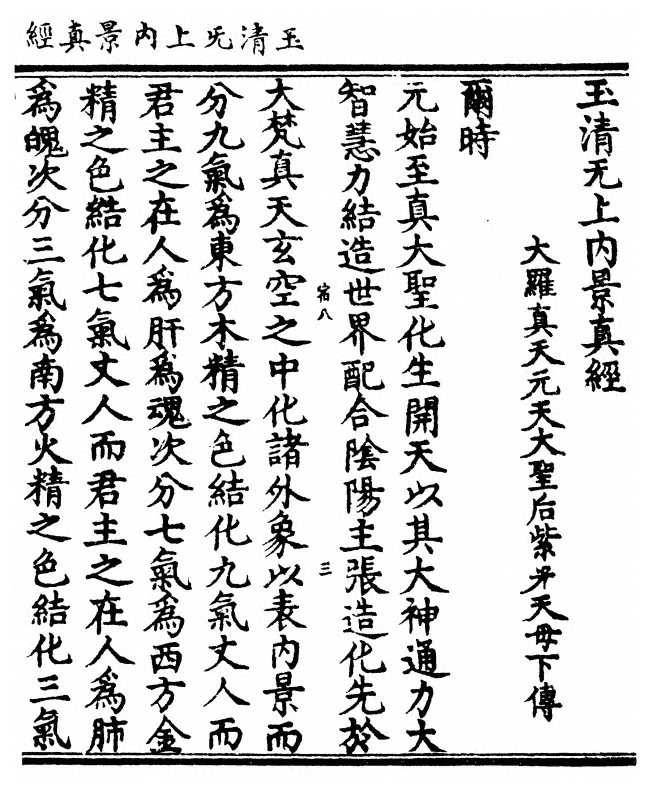 玉清旡上內景真經
玉清无上内景真經
大羅真天元天大聖后紫光天母下傳
爾時
元始至真大聖化生開天以其大神通力大
智慧力結造世界配合陰陽主張造化先於
宿八
三
大梵真天玄空之中化諸外象以表内景而
分九氣爲東方木精之色結化九氣丈人而
君主之在人爲肝爲魂次分七氣爲西方金
精之色結化七氣丈人而君主之在人爲肺
爲魄次分三氣爲南方火精之色結化三氣